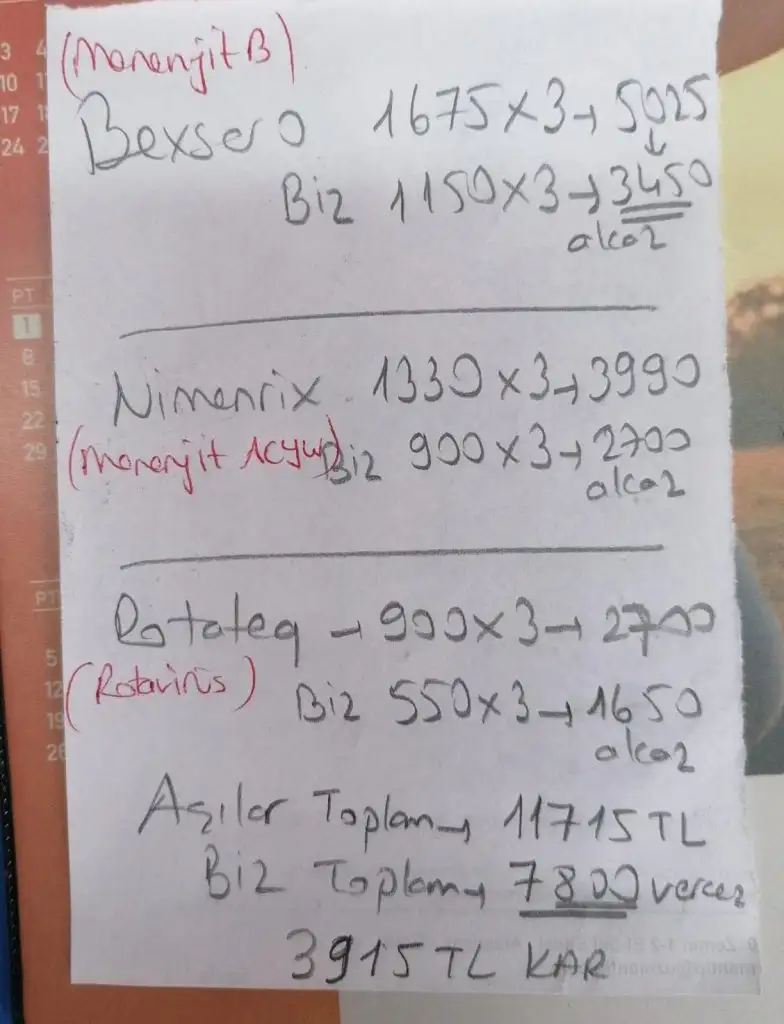 (Menenjit B)
Bexsero 1675 x 3 → 5025
↓
Biz 1150 x 3 → 3450
alcaz
Nimenrix 1330 x 3 → 3990
(Menenjit ACYW) Biz 900 x 3 → 2700
alcaz
Rotateq → 900 x 3 → 2700
(Rotavirüs) Biz 550 x 3 → 1650
alcaz
Aşılar Toplam → 11715 TL
Biz Toplam → 7800 vercez
3915 TL KAR
3 4
10 1
17 1
24 2
PT
1
8
15
22
29
PT
5
12
19
26